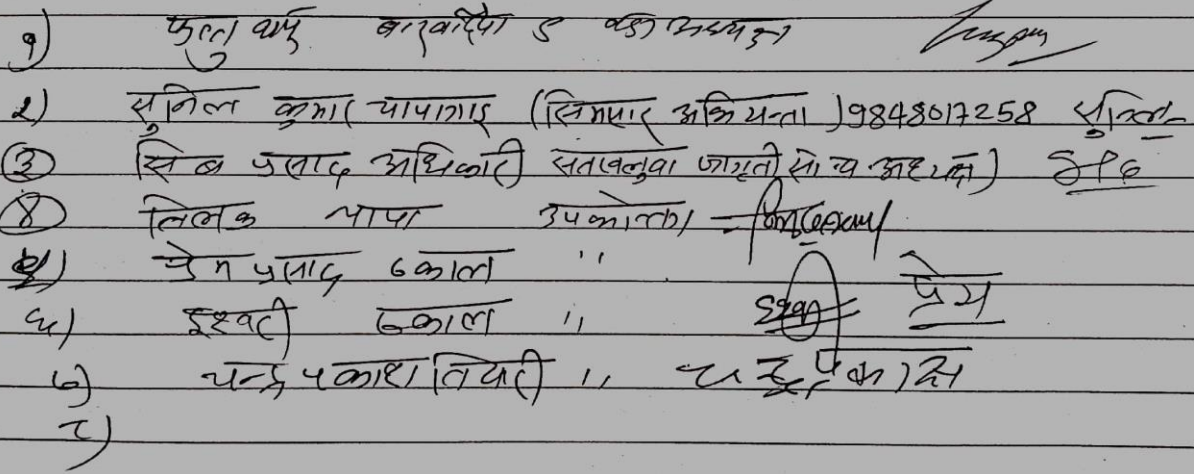 १) फुलत थापु बारबर्दिया ८ वडा अध्यक्ष
२) सुनिल कुमार चापागाइ (सिमपार अभियन्ता) 9848017258 सुनिल
३) सिब प्रसाद अधिकारी सतखलुवा जागृती सो च अध्यक्ष)
४ तिलक थापा उपभोक्ता
५) प्रेम प्रसाद ढकाल "
५) इश्वरी ढकाल " इश्वरी प्रेम
७) चन्द्र प्रकाश तिवारी " चन्द्र प्रकास
८)